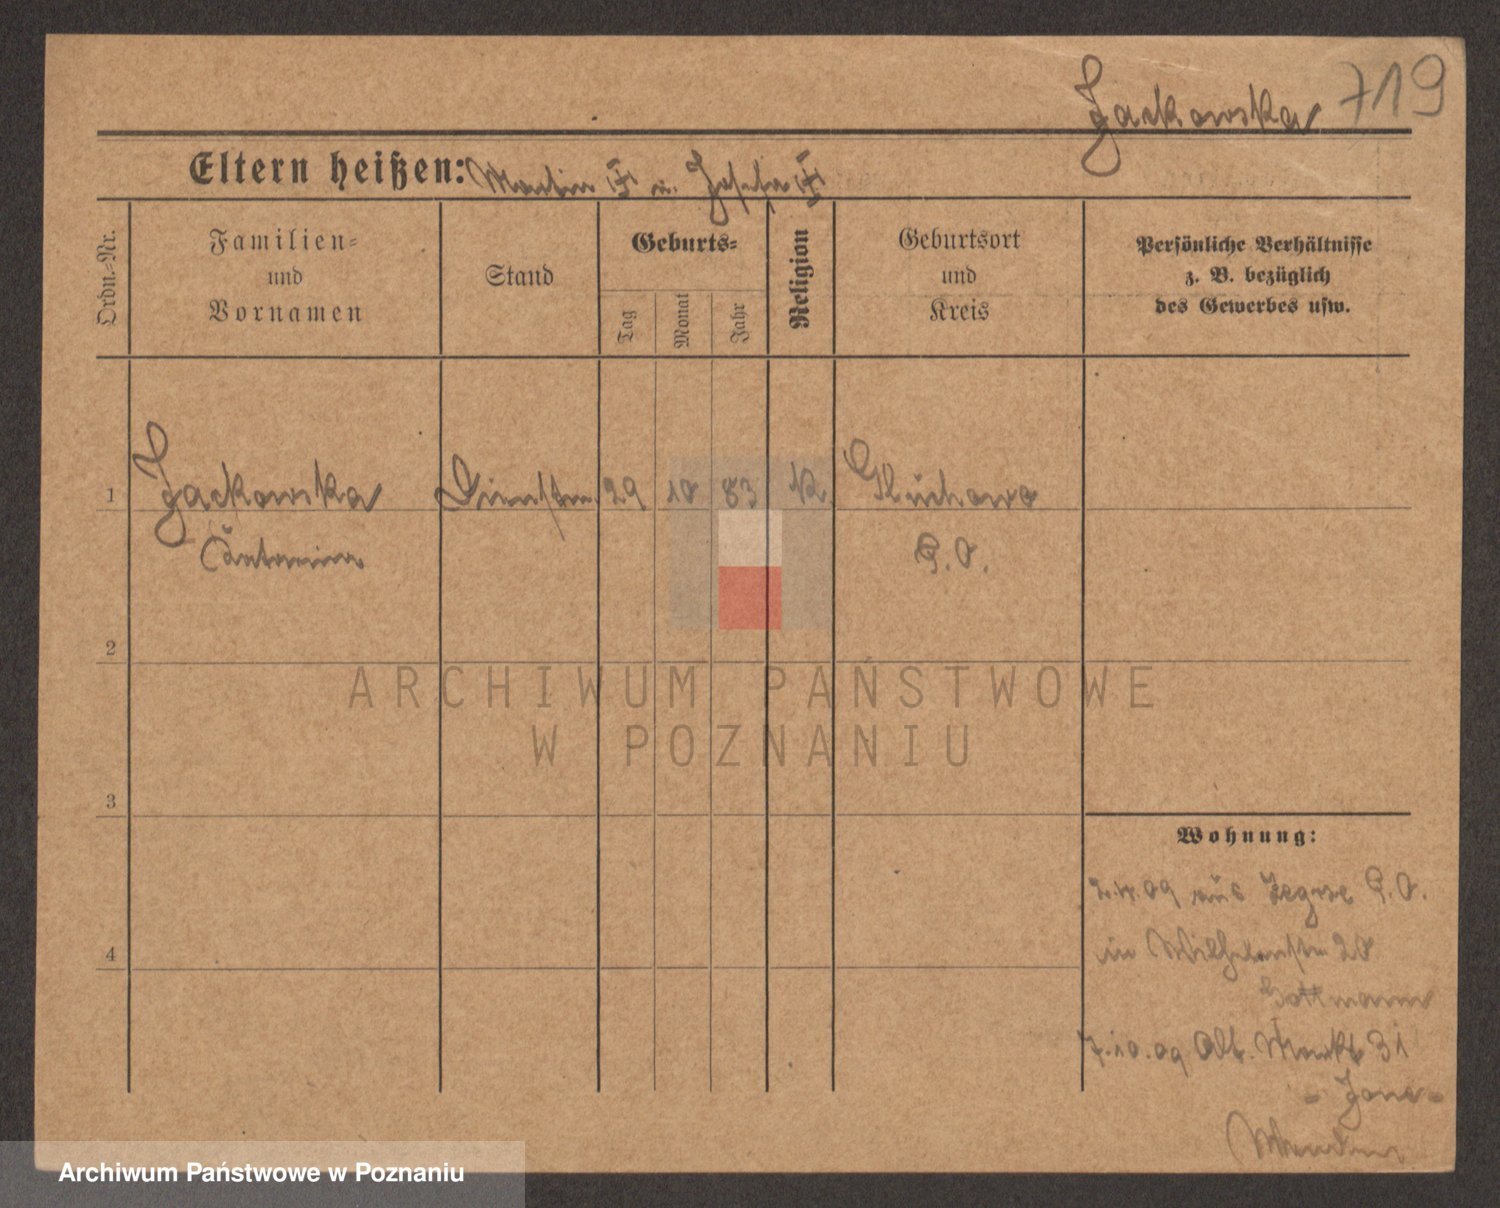 Jackowska 719
Eltern heißen: Martin u. Josefa
Ordn.-Nr.
Familien-
und
Vornamen
Stand
Geburts-
Tag
Monat
Jahr
Religion
Geburtsort
und
Kreis
Persönliche Verhältnisse
z. B. bezüglich
des Gewerbes usw.
1 Jackowska Dienstm. 29 10 83 K Gluchowo
Antonina P.O.
2
3
4
Wohnung:
09 aus Zegrze P.O.
in Wilhelmstr 20
Gottmann
7.10.09 Alt. Markt 31
ARCHIWUM PAŃSTWOWE
W POZNANIU
Archiwum Państwowe w Poznaniu